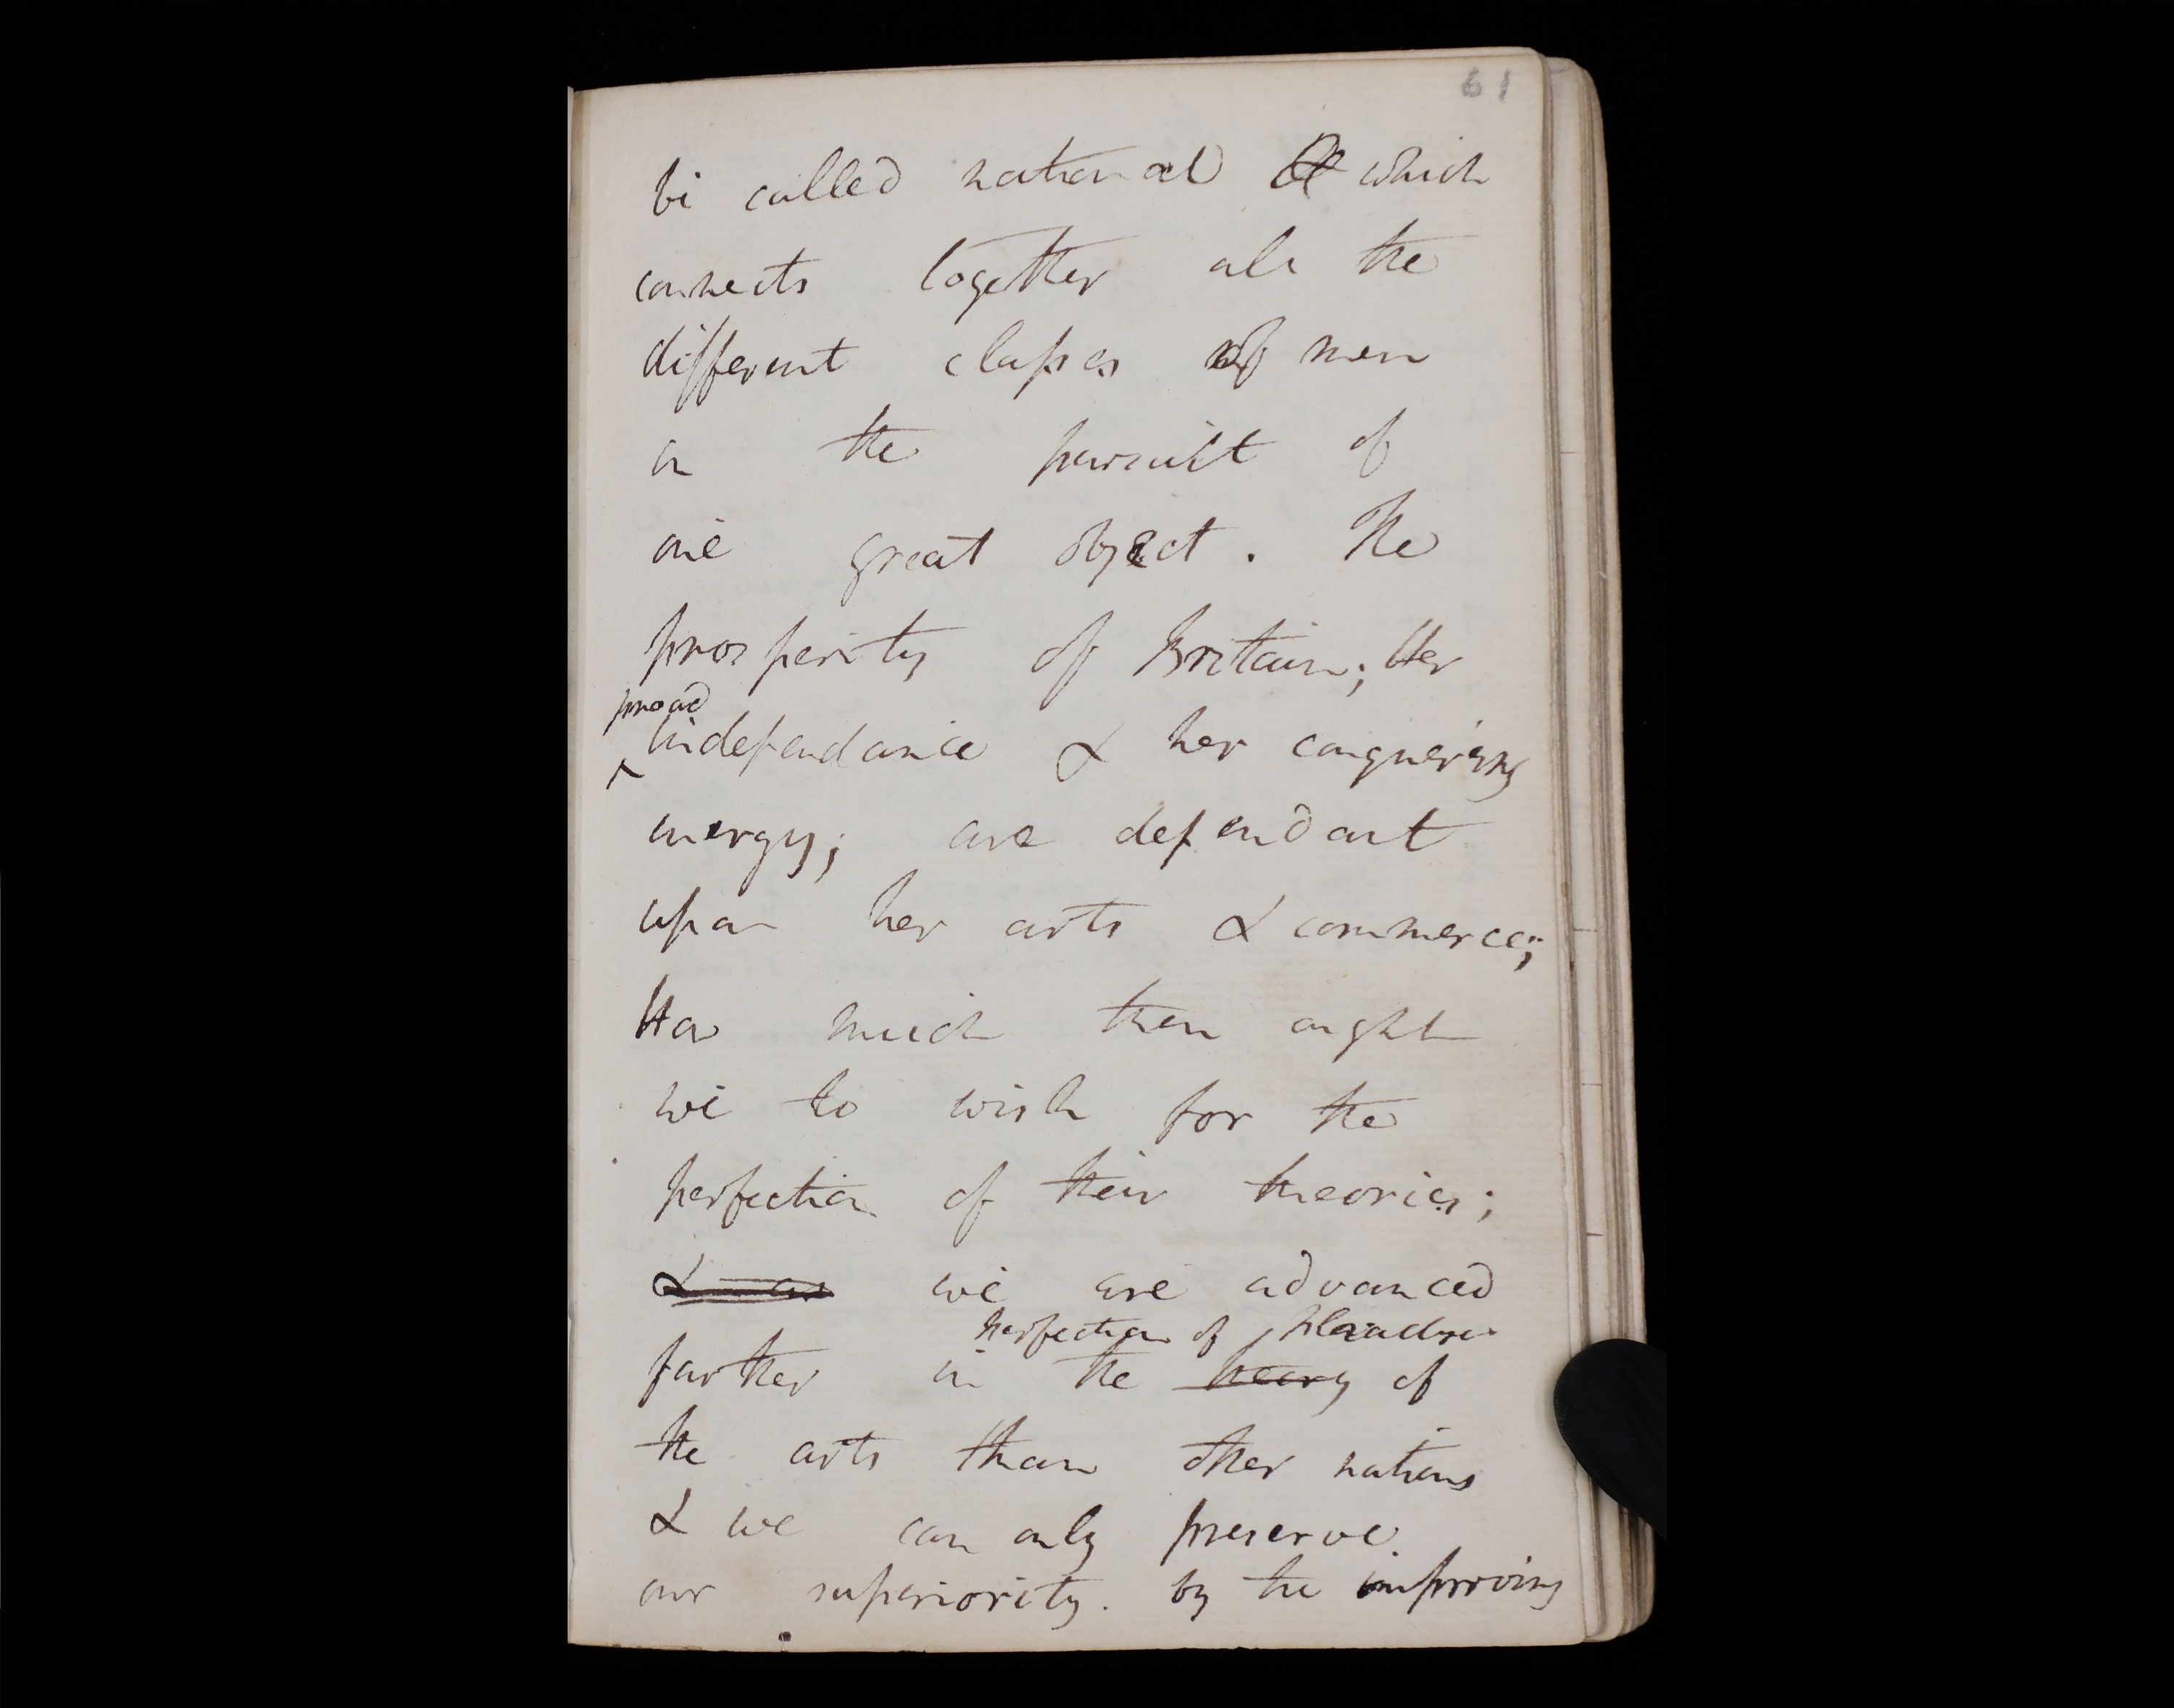 61
be called national & which
connects together all the
different classes of men
in the pursuit of
one great object. The
prosperity of Britain; Her
proud
independance & her conquering
energy; are dependant
upon her arts & commerce;
How much then ought
we to wish for the
perfection of their theories;
& as we are advanced
perfection of
farther in the theory of
the arts than other nations
& we can only preserve
our superiority. by the improving